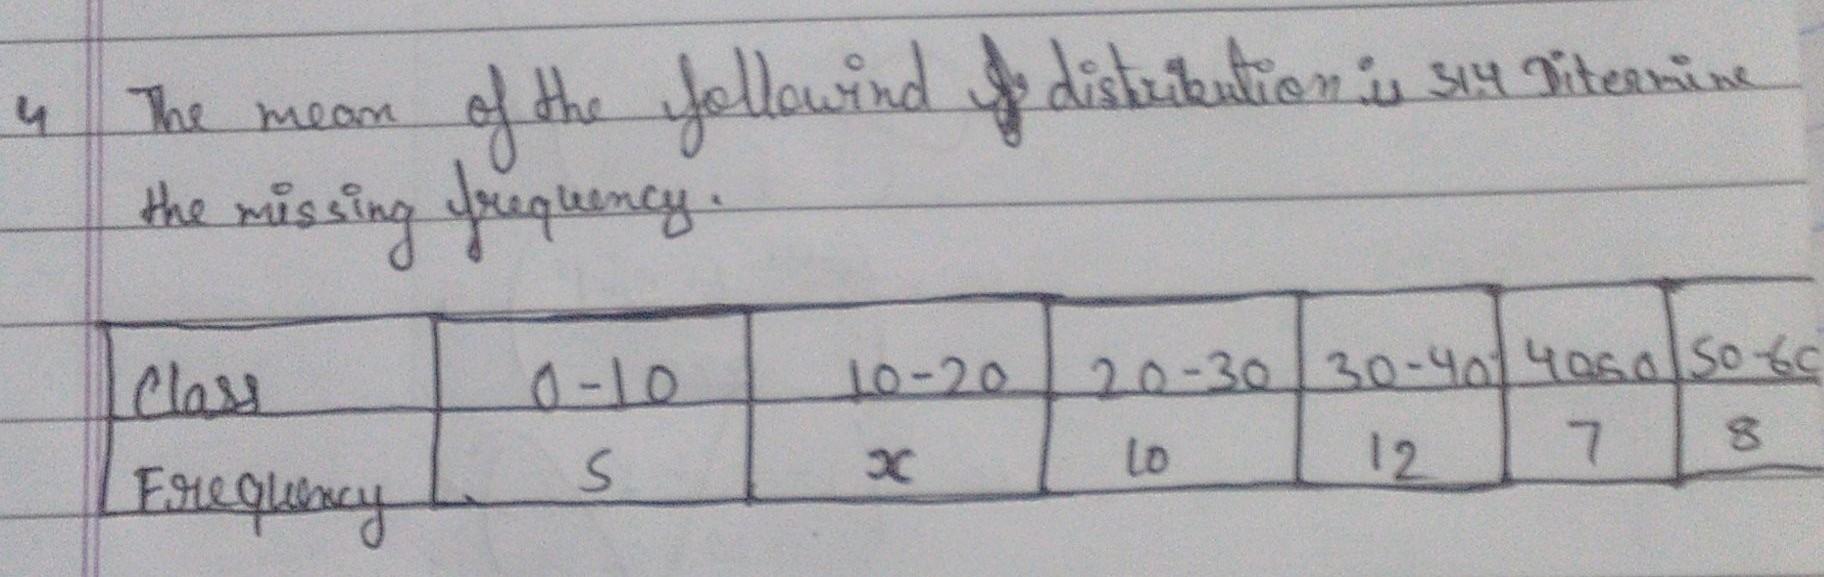 4 The mean of the followind distribution is 31.4 Ditermine
the missing frequency.
Class 0-10 10-20 20-30 30-40 4050 50-60
Frequency 5 x 10 12 7 8